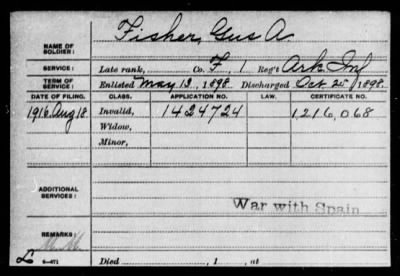 NAME OF SOLDIER: Fisher, Gus A.
SERVICE: Late rank, Co. F, 1 Reg't Ark Inf
TERM OF SERVICE: Enlisted May 13, 1898. Discharged Oct 25, 1898.
DATE OF FILING. CLASS. APPLICATION NO. LAW. CERTIFICATE NO.
1916. Aug 18. Invalid, 1424724 1216,068
Widow,
Minor,
ADDITIONAL SERVICES:
War with Spain
REMARKS:
L 3-471 Died , 1 , at